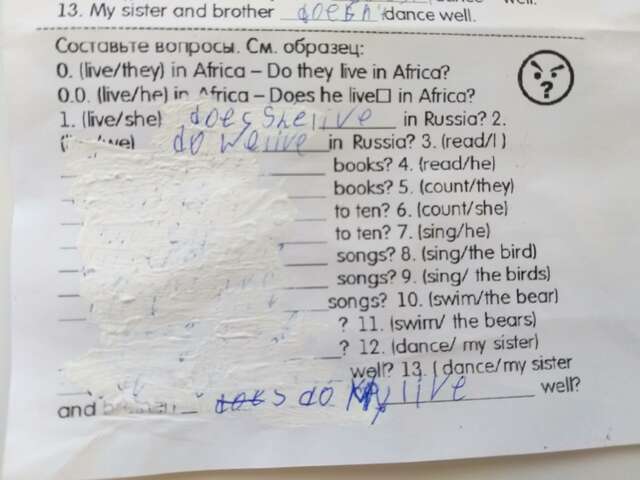 well.
13. My sister and brother doesn't dance well.
Составьте вопросы. См. образец:
0. (live/they) in Africa – Do they live in Africa?
0.0. (live/he) in Africa – Does he live□ in Africa?
1. (live/she) does she live in Russia? 2.
do we live in Russia? 3. (read/I )
books? 4. (read/he)
books? 5. (count/they)
to ten? 6. (count/she)
to ten? 7. (sing/he)
songs? 8. (sing/the bird)
songs? 9. (sing/ the birds)
songs? 10. (swim/the bear)
? 11. (swim/ the bears)
? 12. (dance/ my sister)
well? 13. ( dance/my sister
and does do my live well?